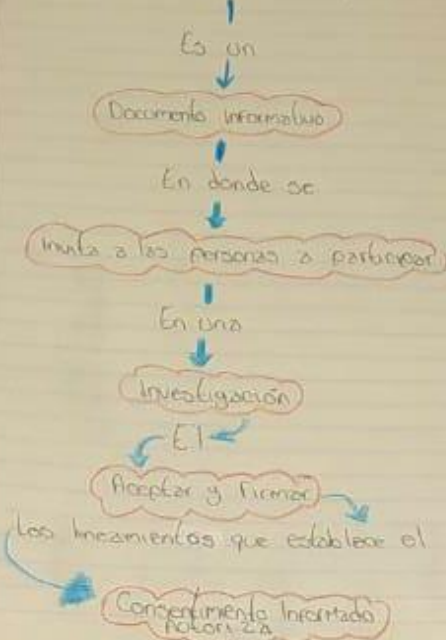 Es un
Documento informativo
En donde se
invita a las personas a participar
En una
Investigación
El
Aceptar y firmar
los lineamientos que establece el
Consentimiento Informado
Autoriza